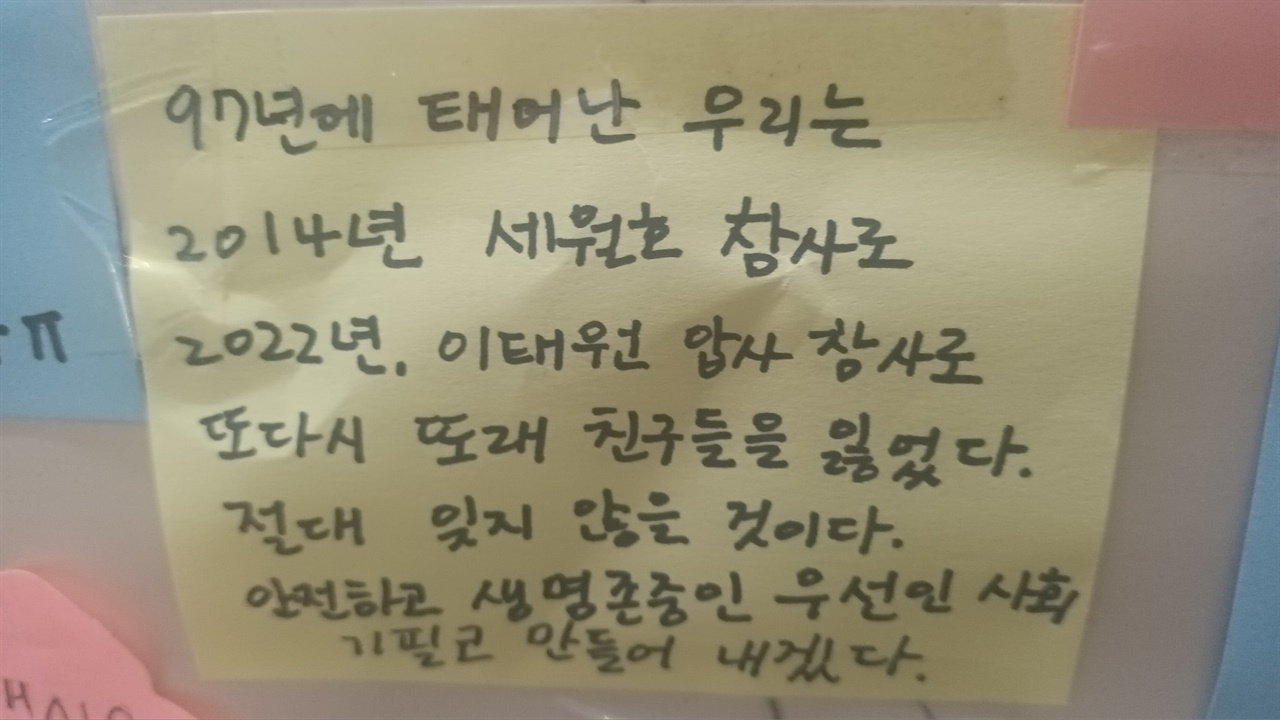 97년에 태어난 우리는
2014년 세월호 참사로
2022년. 이태원 압사 참사로
또다시 또래 친구들을 잃었다.
절대 잊지 않을 것이다.
안전하고 생명존중인 우선인 사회
기필코 만들어 내겠다.